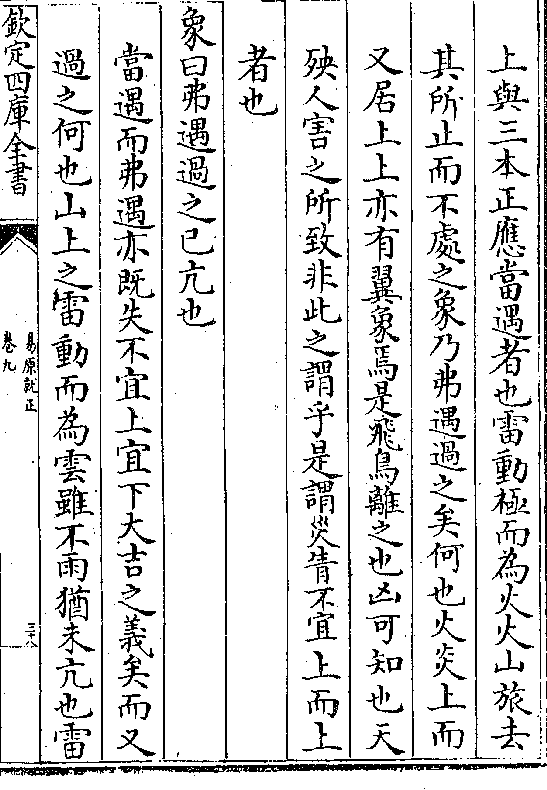 上與三本正應當遇者也雷動極而為火火山旅去
其所止而不處之象乃弗遇過之矣何也火炎上而
又居上上亦有翼象焉是飛鳥離之也凶可知也天
殃人害之所致非此之謂乎是謂災眚不宜上而上
者也
象曰弗遇過之已亢也
當遇而弗遇亦既失不宜上宜下大吉之義矣而又
過之何也山上之雷動而為雲雖不雨猶未亢也雷
欽定四庫全書
易原就正
卷九
三十八